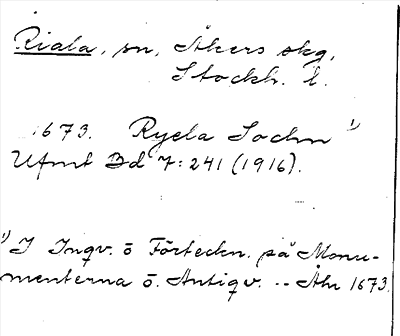 Riala, sn, Åkers skg,
Stockh. l.
1673. Ryela Sochn 1)
Ufmt Bd 7: 241 (1916).
1) I Ingv. ö Förteckn. på Monu-
menterna ö. Antiqv. -- Åhr 1673.